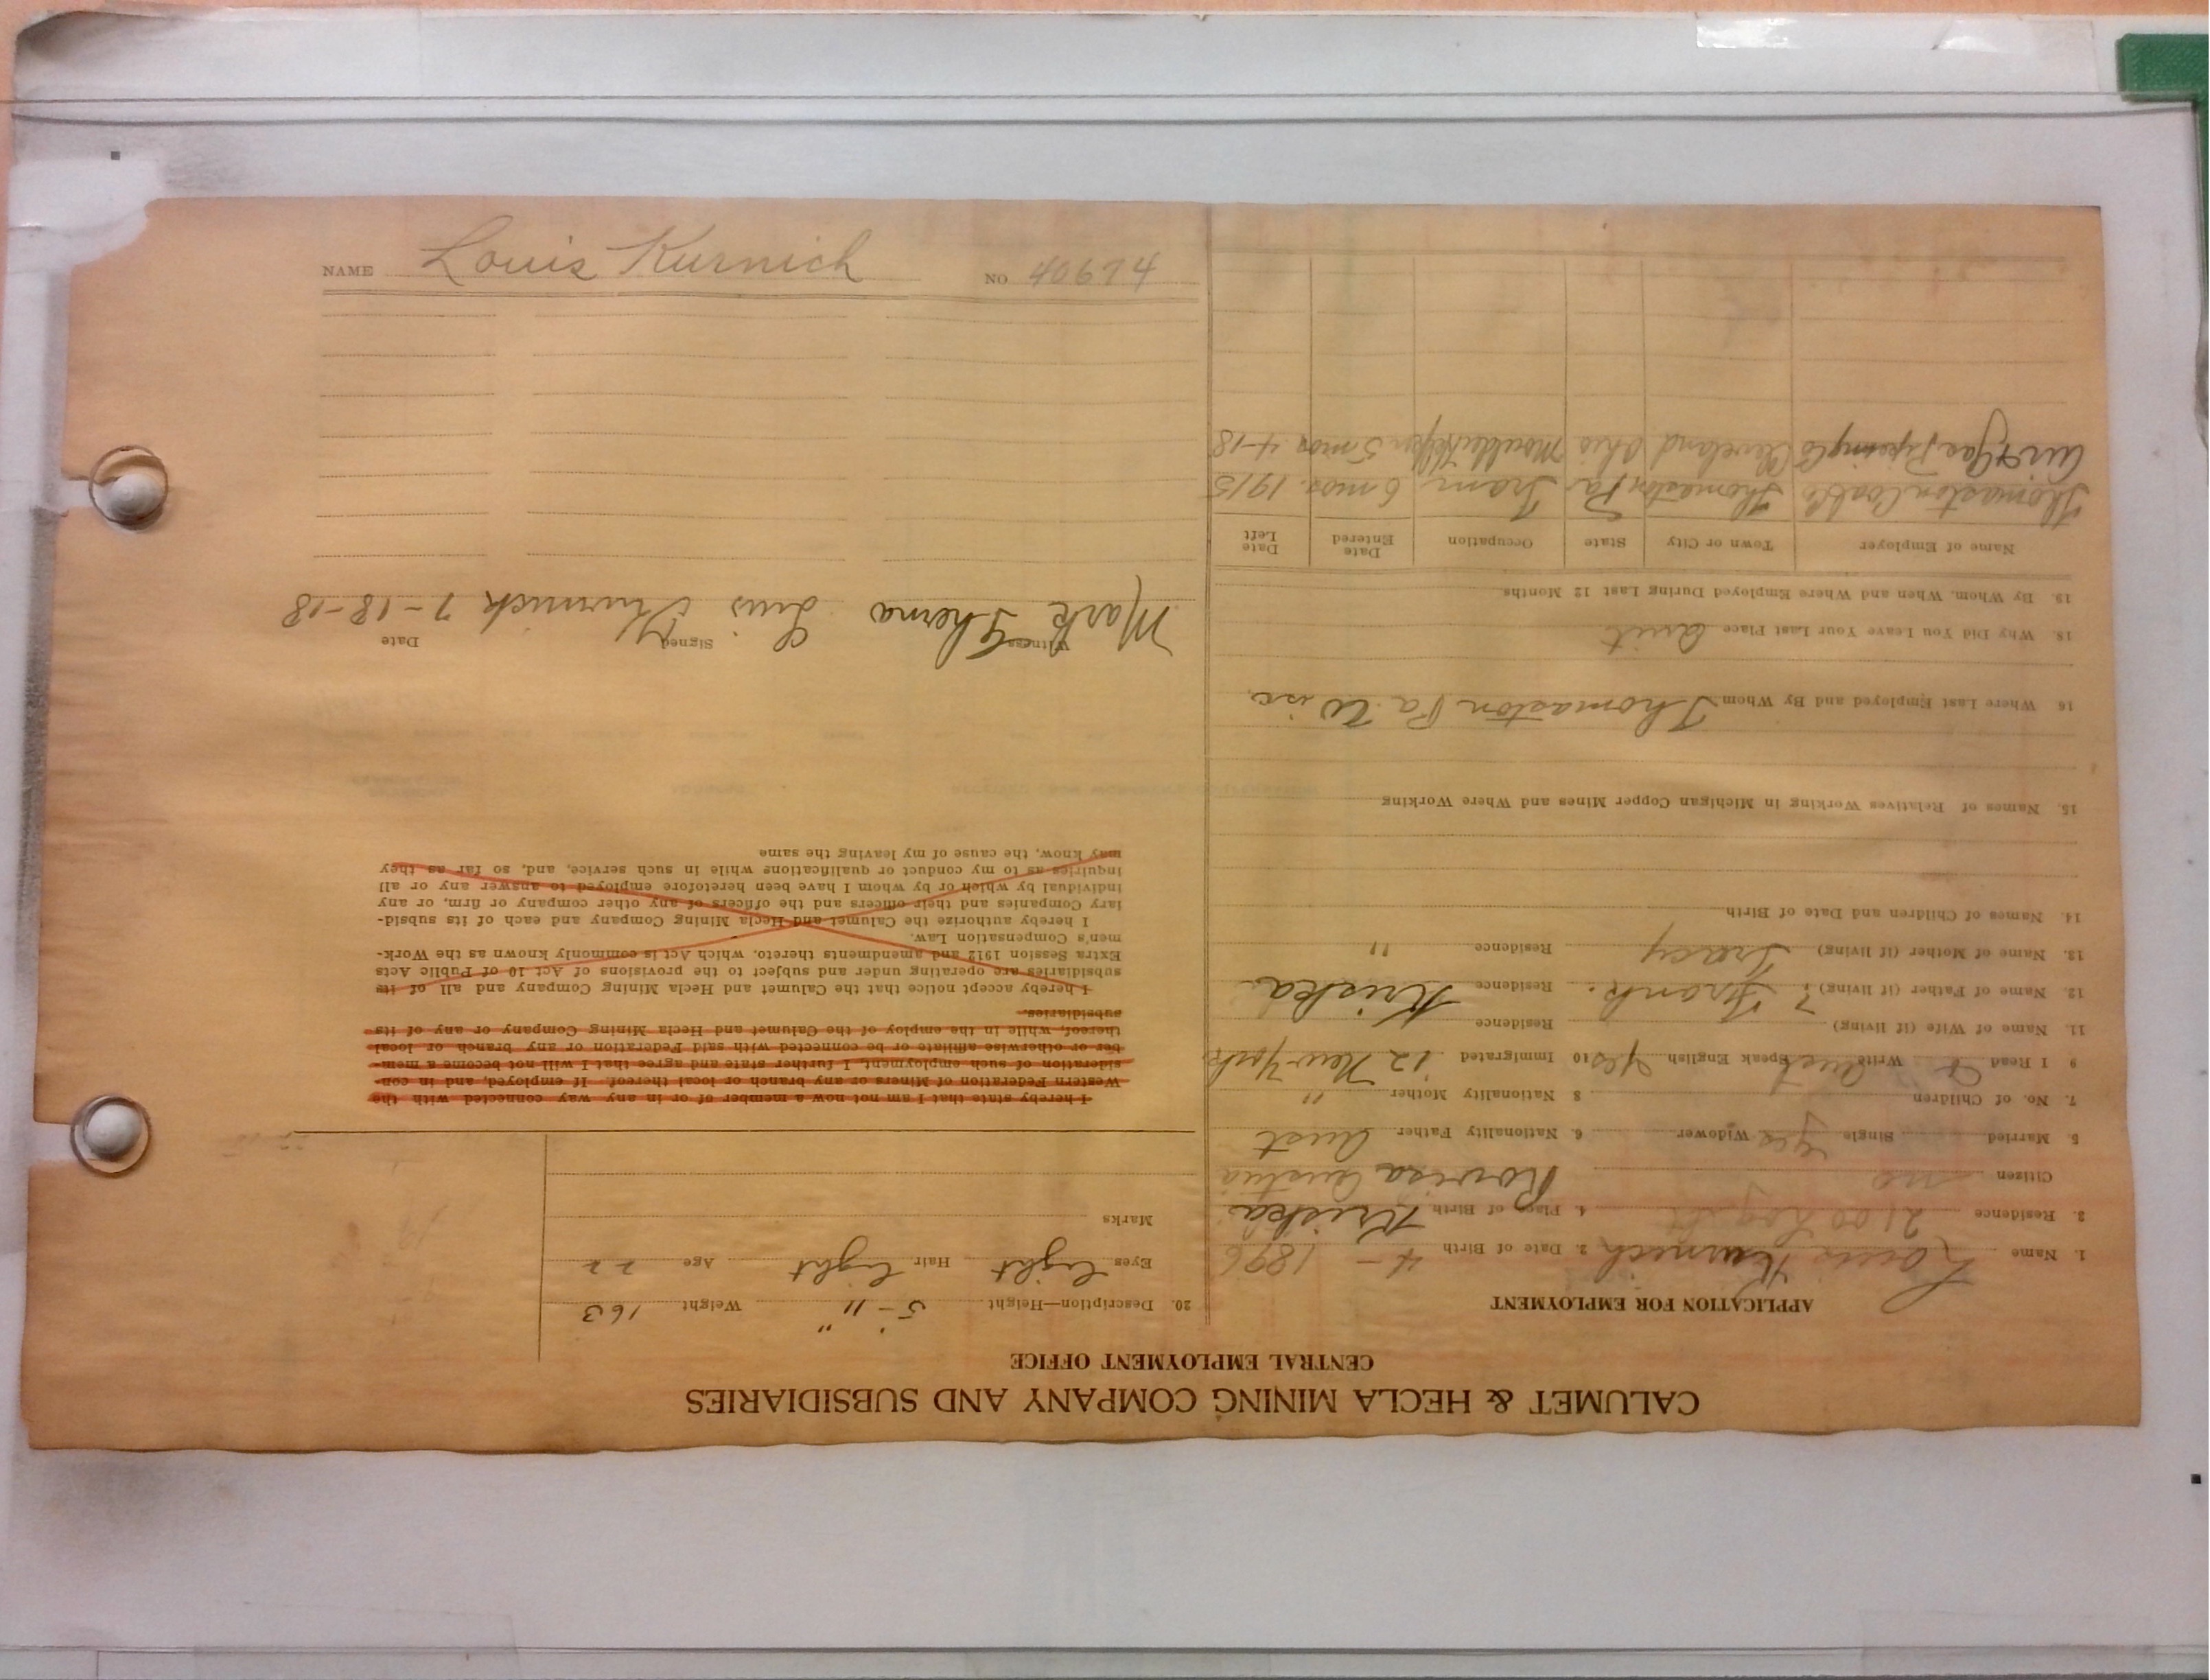 CALUMET & HECLA MINING COMPANY AND SUBSIDIARIES
CENTRAL EMPLOYMENT OFFICE
APPLICATION FOR EMPLOYMENT
1. Name Louis Kurnich 2. Date of Birth 4 - 1896
3. Residence 2100 4. Place of Birth Kriska
Citizen no Austria
5. Married Single yes Widower 6. Nationality Father Aust
7. No. of Children 8 Nationality Mother "
9 I Read Write Aust Speak English Yes 10 Immigrated '12 New York
11. Name of Wife (if living) Residence
12. Name of Father (if living) ? Frank. Residence Kriska
13. Name of Mother (if living) Residence "
14. Names of Children and Date of Birth
15. Names of Relatives Working in Michigan Copper Mines and Where Working
16 Where Last Employed and By Whom Thomaston Pa.
18. Why Did You Leave Your Last Place Quit
19. By Whom, When and Where Employed During Last 12 Months.
Name of Employer Town or City State Occupation Date Entered Date Left
Thomaston Coal Co Thomaston Pa Tram 6 mos. 1915
Cleveland Ohio 5 mos 4-18
20. Description—Height 5'-11" Weight 163
Eyes Light Hair Light Age 22
Marks
I hereby state that I am not now a member of or in any way connected with the
Western Federation of Miners or any branch or local thereof. If employed, and in con-
sideration of such employment, I further state and agree that I will not become a mem-
ber or otherwise affiliate or be connected with said Federation or any branch or local
thereof, while in the employ of the Calumet and Hecla Mining Company or any of its
subsidiaries.
I hereby accept notice that the Calumet and Hecla Mining Company and all of its
subsidiaries are operating under and subject to the provisions of Act 10 of Public Acts
Extra Session 1912 and amendments thereto, which Act is commonly known as the Work-
men's Compensation Law.
I hereby authorize the Calumet and Hecla Mining Company and each of its subsid-
iary Companies and their officers and the officers of any other company or firm, or any
individual by which or by whom I have been heretofore employed to answer any or all
inquiries as to my conduct or qualifications while in such service, and, so far as they
may know, the cause of my leaving the same
Witness Signed Date
Mark Kurnich 7-18-18
NAME Louis Kurnich NO 40674